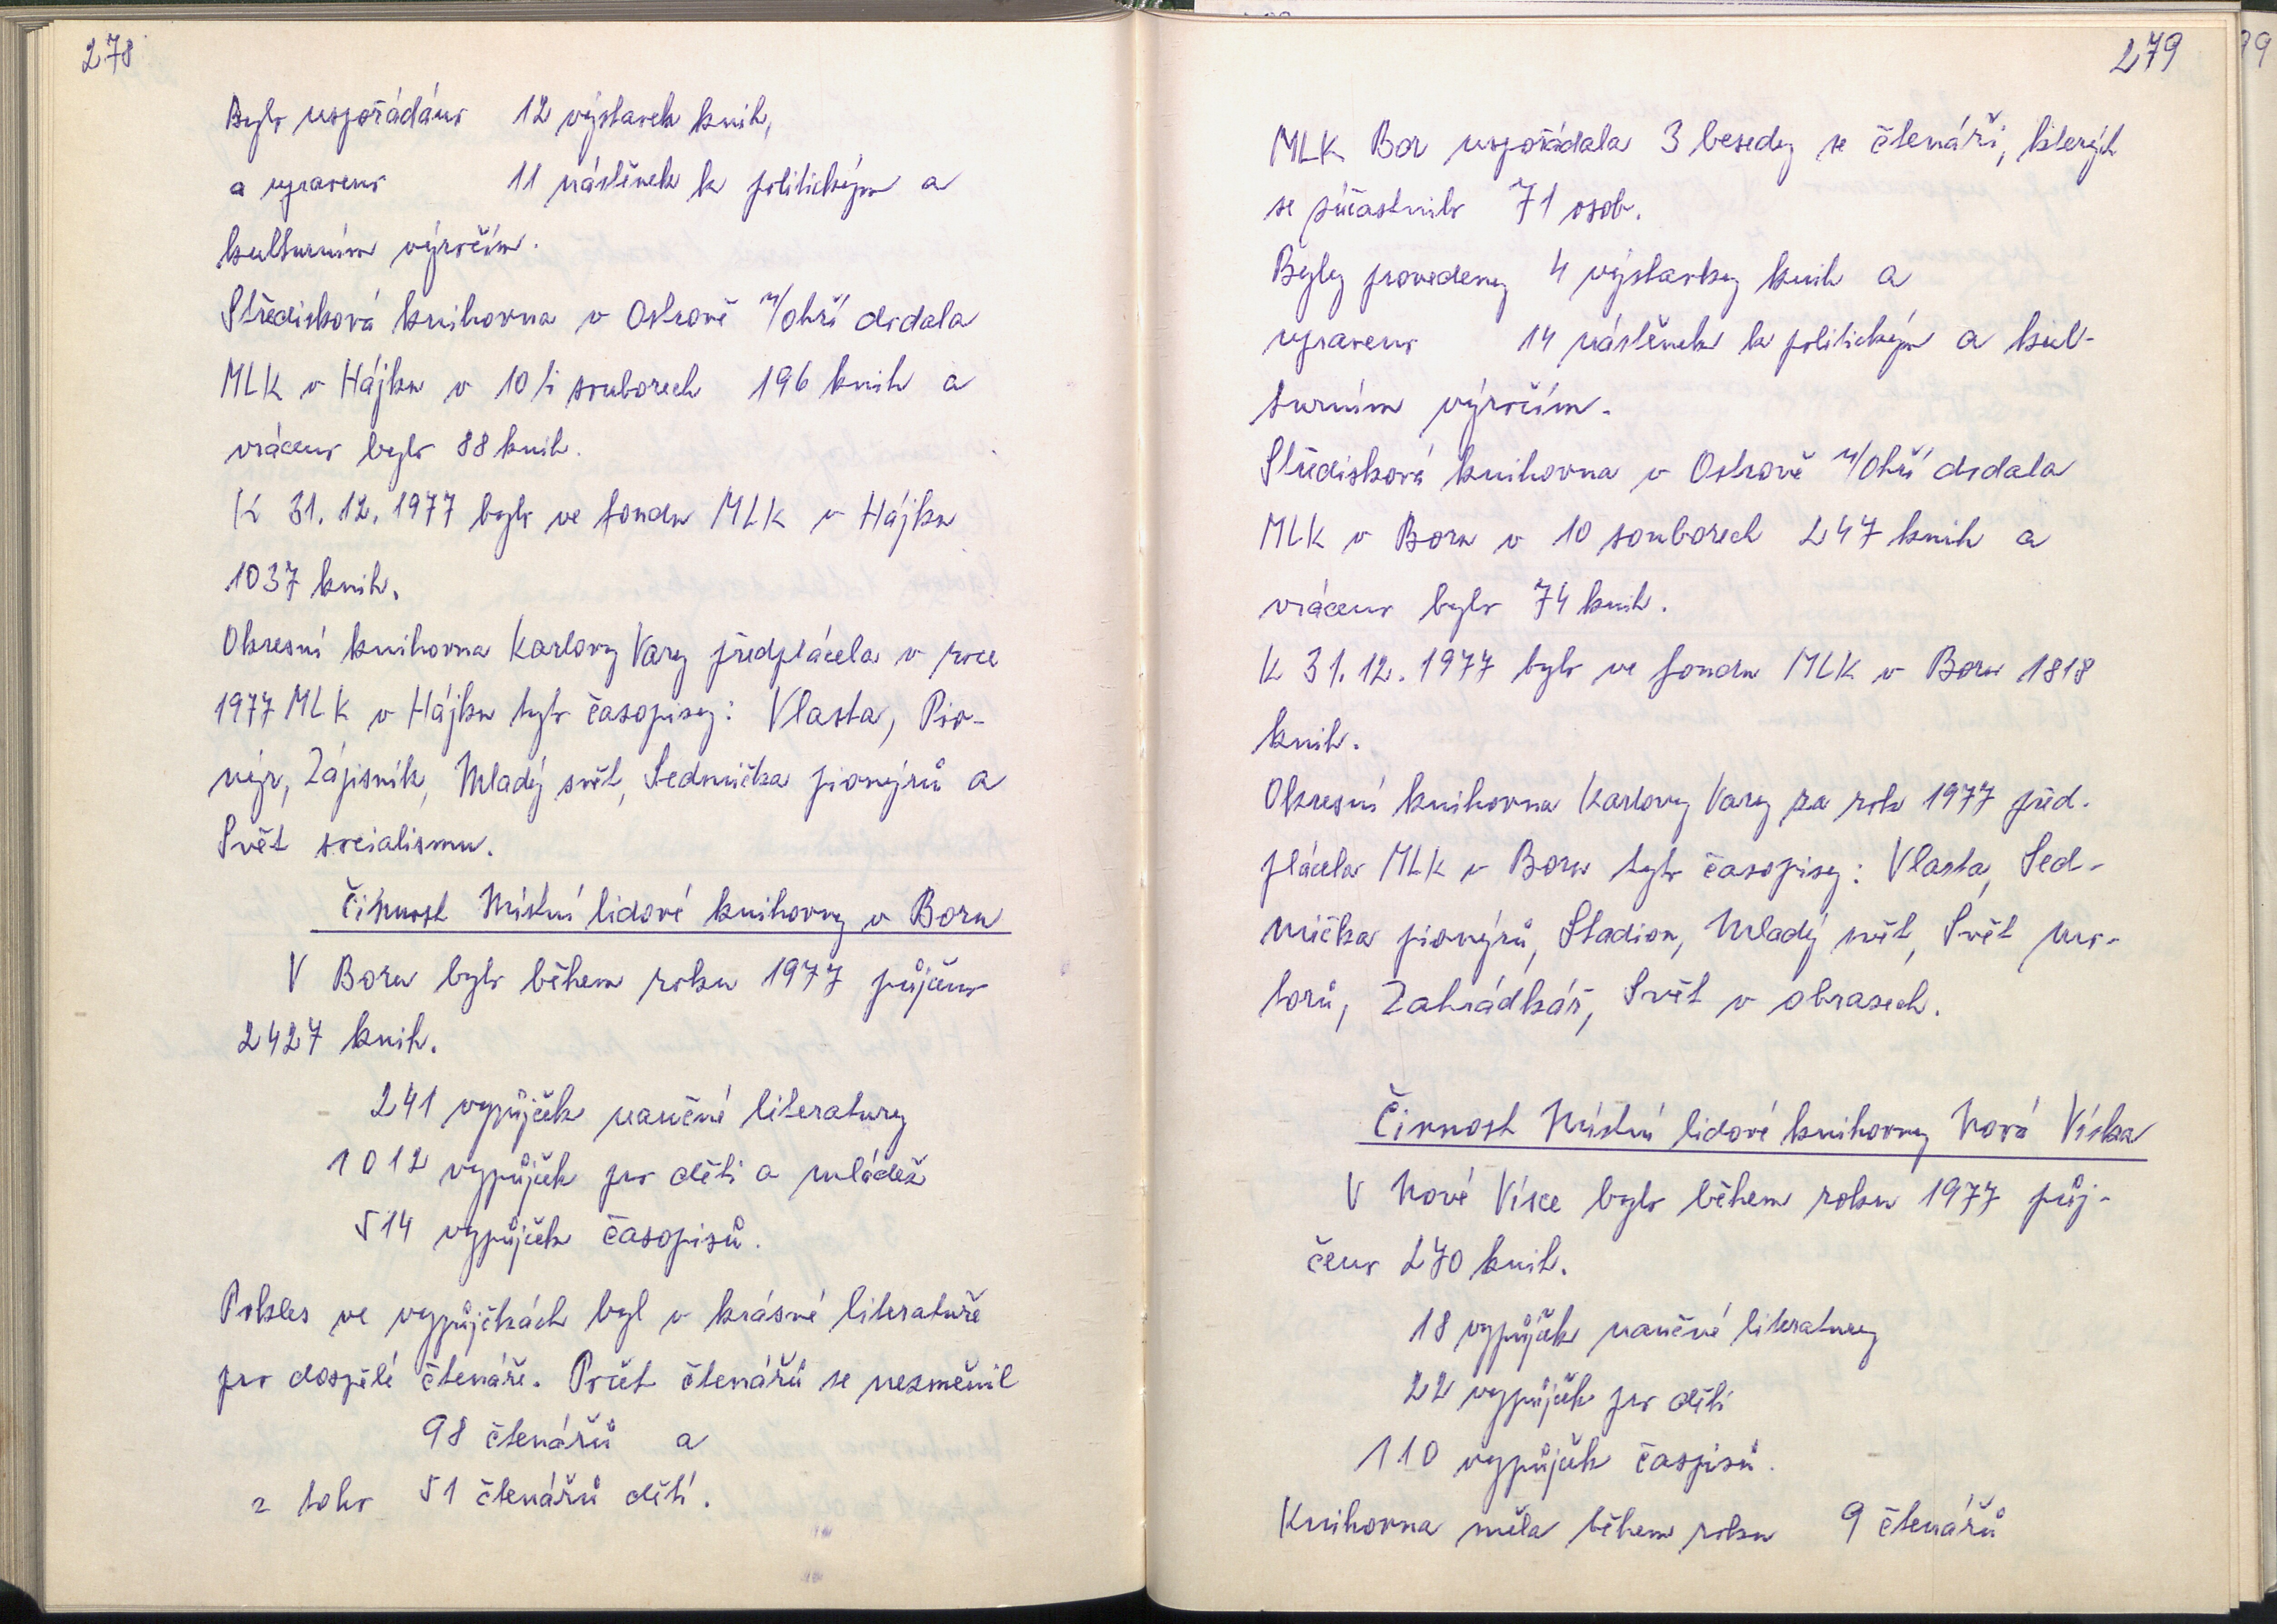 278
Bylo uspořádáno 12 výstavek knih,
a upraveno 11 nástěnek k politickým a
kulturním výročím.
Středisková knihovna v Ostrově n/Ohří dodala
MLK v Hájku v 10ti souborech 196 knih a
vráceno bylo 88 knih.
K 31. 12. 1977 bylo ve fondu MLK v Hájku
1037 knih.
Okresní knihovna Karlovy Vary předplácela v roce
1977 MLK v Hájku tyto časopisy: Vlasta, Pio-
nýr, Zápisník, Mladý svět, Sedmička pionýrů a
Svět socialismu.
Činnost Místní lidové knihovny v Boru
V Boru bylo během roku 1977 půjčeno
2427 knih.
241 vypůjček naučné literatury
1012 vypůjček pro děti a mládež
514 vypůjček časopisů.
Pokles ve vypůjčkách byl v krásné literatuře
pro dospělé čtenáře. Počet čtenářů se nezměnil
98 čtenářů a
z toho 51 čtenářů dětí.
279
MLK Bor uspořádala 3 besedy se čtenáři, kterých
se zúčastnilo 71 osob.
Byly provedeny 4 výstavky knih a
upraveno 14 nástěnek k politickým a kul-
turním výročím.
Středisková knihovna v Ostrově n/Ohří dodala
MLK v Boru v 10 souborech 247 knih a
vráceno bylo 74 knih.
K 31. 12. 1977 bylo ve fondu MLK v Boru 1818
knih.
Okresní knihovna Karlovy Vary za rok 1977 před-
plácela MLK v Boru tyto časopisy: Vlasta, Sed-
mička pionýrů, Stadion, Mladý svět, Svět mo-
torů, Zahrádkář, Svět v obrazech.
Činnost Místní lidové knihovny Nová Víska
V Nové Vísce bylo během roku 1977 půj-
čeno 270 knih.
18 vypůjček naučné literatury
22 vypůjček pro děti
110 vypůjček časpisů.
Knihovna měla během roku 9 čtenářů